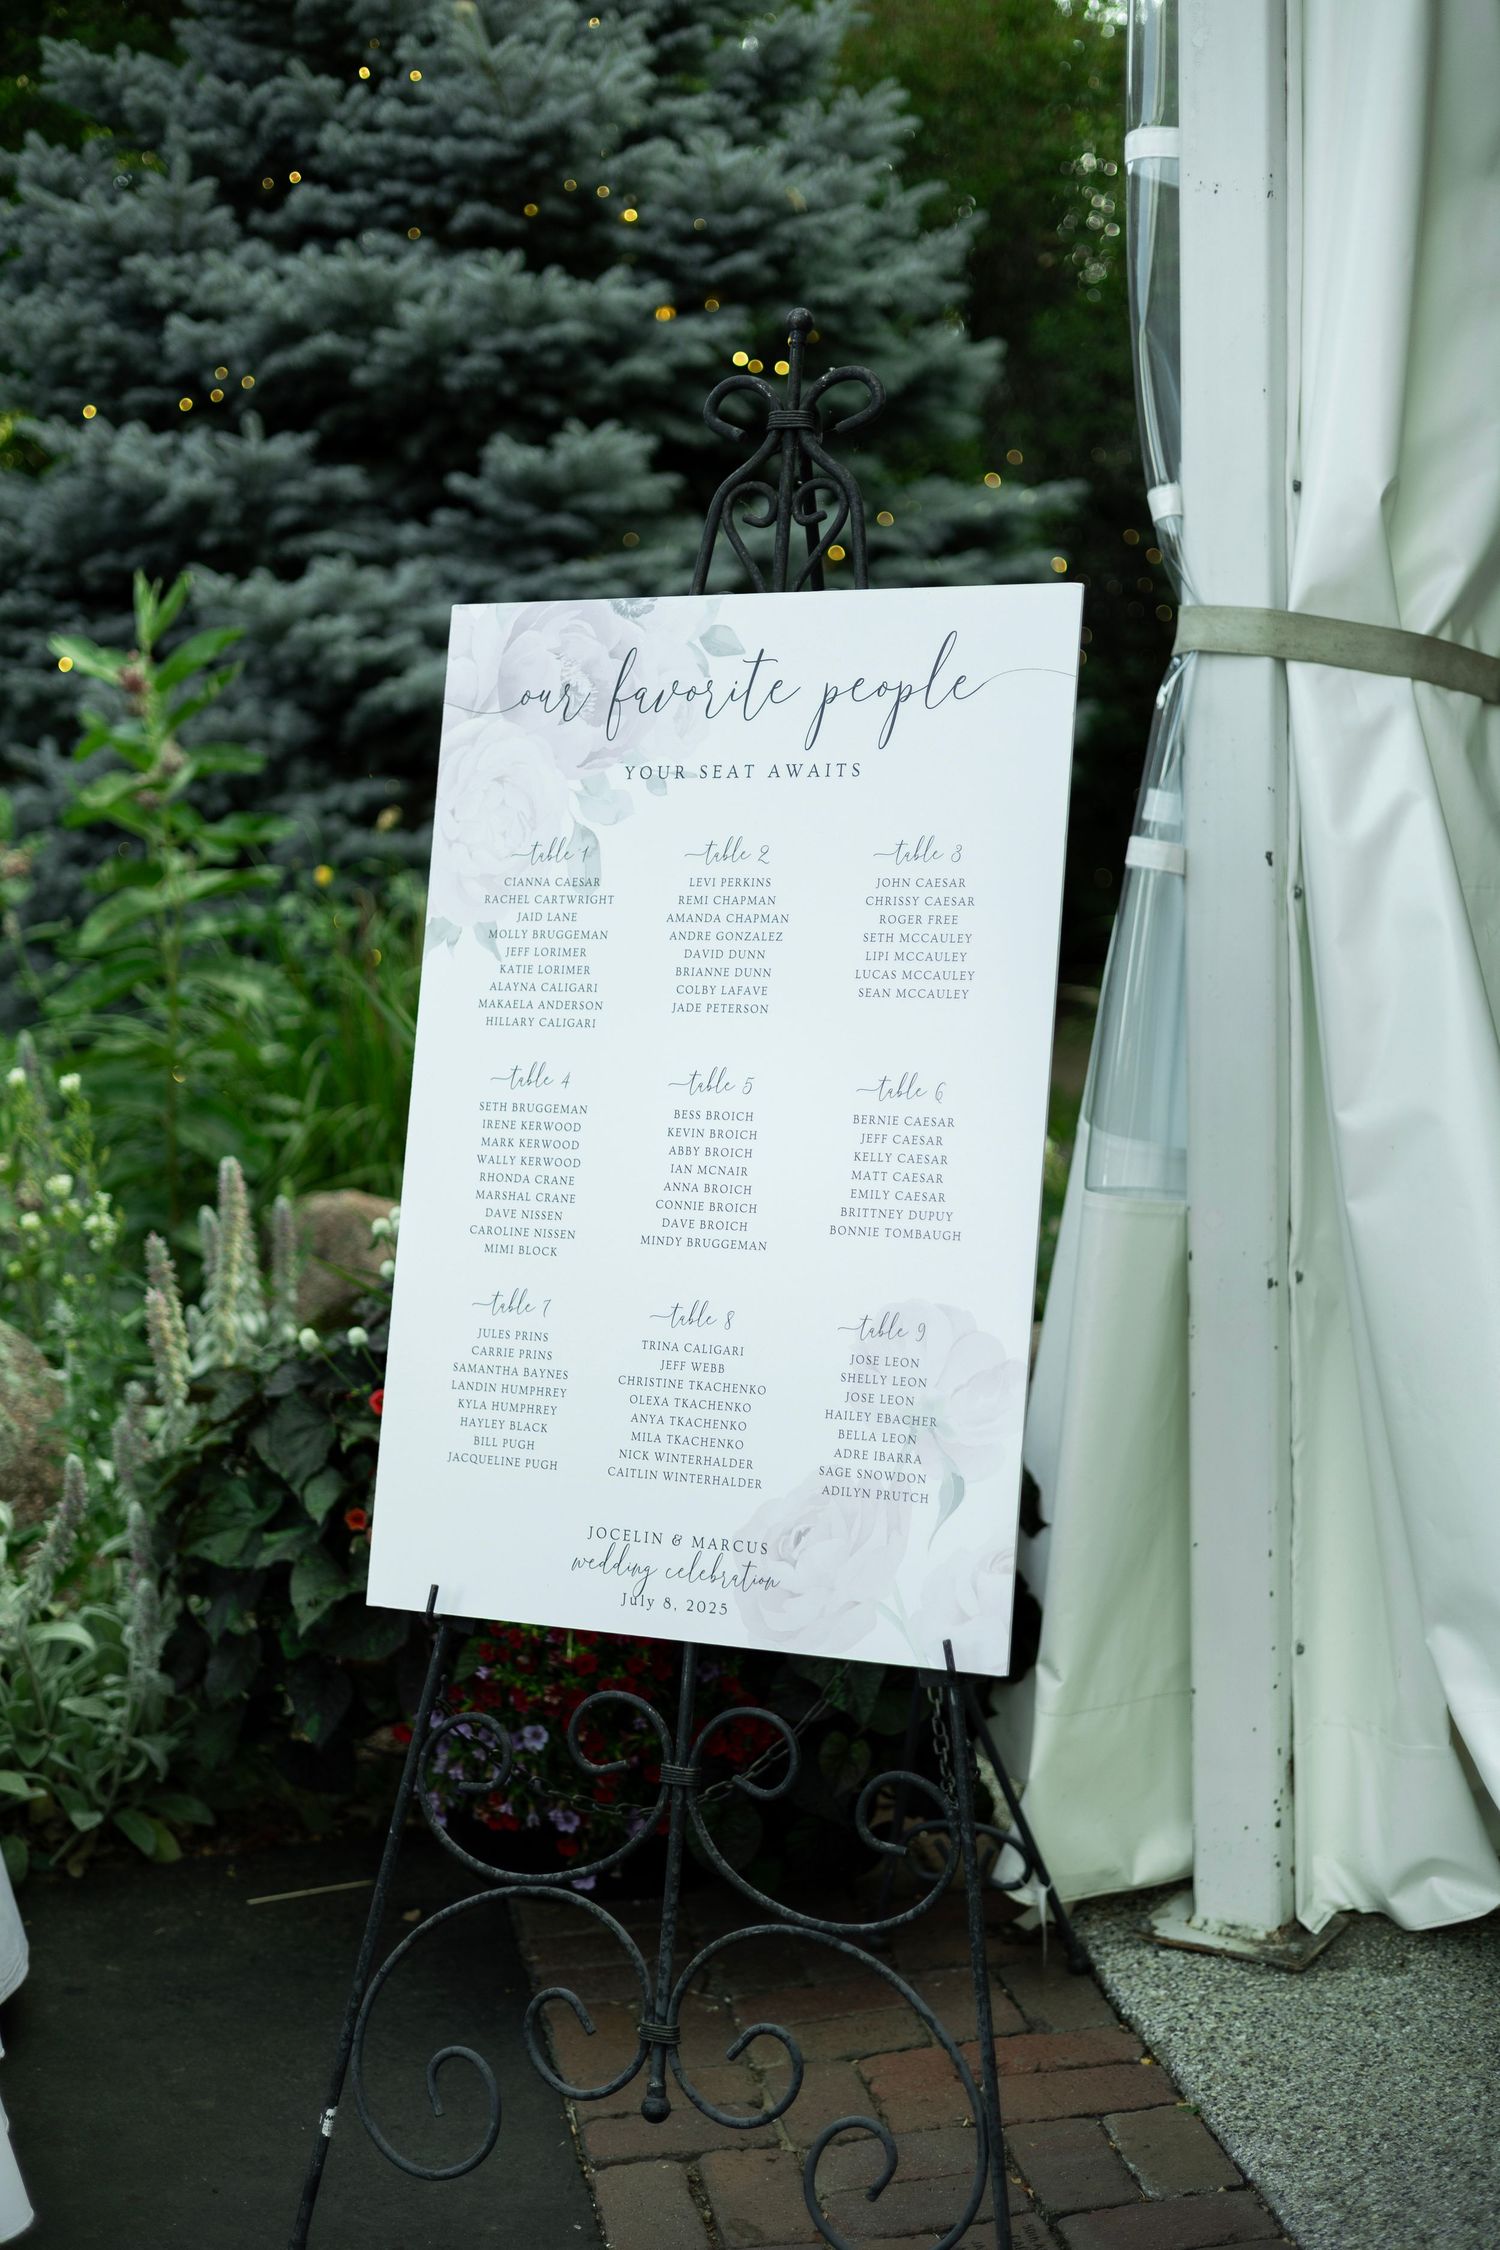 our favorite people
YOUR SEAT AWAITS
table 1
CIANNA CAESAR
RACHEL CARTWRIGHT
JAID LANE
MOLLY BRUGGEMAN
JEFF LORIMER
KATIE LORIMER
ALAYNA CALIGARI
MAKAELA ANDERSON
HILLARY CALIGARI
table 2
LEVI PERKINS
REMI CHAPMAN
AMANDA CHAPMAN
ANDRE GONZALEZ
DAVID DUNN
BRIANNE DUNN
COLBY LAFAVE
JADE PETERSON
table 3
JOHN CAESAR
CHRISSY CAESAR
ROGER FREE
SETH MCCAULEY
LIPI MCCAULEY
LUCAS MCCAULEY
SEAN MCCAULEY
table 4
SETH BRUGGEMAN
IRENE KERWOOD
MARK KERWOOD
WALLY KERWOOD
RHONDA CRANE
MARSHAL CRANE
DAVE NISSEN
CAROLINE NISSEN
MIMI BLOCK
table 5
BESS BROICH
KEVIN BROICH
ABBY BROICH
IAN MCNAIR
ANNA BROICH
CONNIE BROICH
DAVE BROICH
MINDY BRUGGEMAN
table 6
BERNIE CAESAR
JEFF CAESAR
KELLY CAESAR
MATT CAESAR
EMILY CAESAR
BRITTNEY DUPUY
BONNIE TOMBAUGH
table 7
JULES PRINS
CARRIE PRINS
SAMANTHA BAYNES
LANDIN HUMPHREY
KYLA HUMPHREY
HAYLEY BLACK
BILL PUGH
JACQUELINE PUGH
table 8
TRINA CALIGARI
JEFF WEBB
CHRISTINE TKACHENKO
OLEXA TKACHENKO
ANYA TKACHENKO
MILA TKACHENKO
NICK WINTERHALDER
CAITLIN WINTERHALDER
table 9
JOSE LEON
SHELLY LEON
JOSE LEON
HAILEY EBACHER
BELLA LEON
ADRE IBARRA
SAGE SNOWDON
ADILYN PRUTCH
JOCELIN & MARCUS
wedding celebration
July 8, 2025